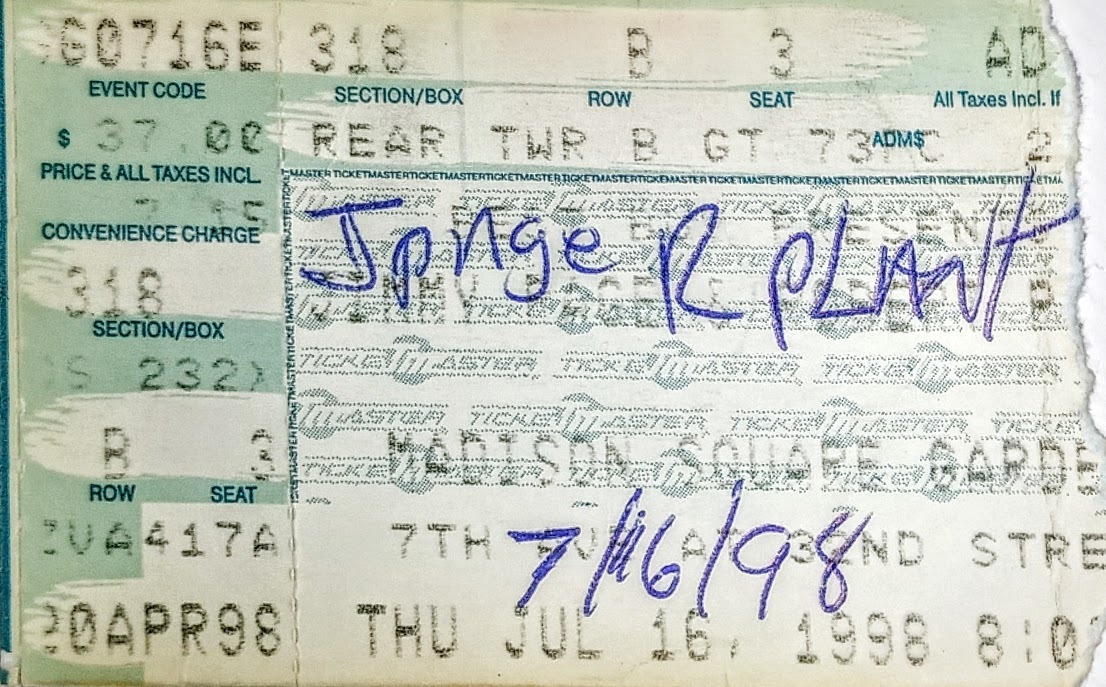 G0716E 318 B 3 AD
EVENT CODE SECTION/BOX ROW SEAT All Taxes Incl. If
$ 37.00 REAR TWR B GT 73 C ADM$ 2
PRICE & ALL TAXES INCL.
TICKETMASTER TICKETMASTER TICKETMASTER TICKETMASTER
CONVENIENCE CHARGE
PRESENT
R PLANT
318
SECTION/BOX
S 232)
B 3 MADISON SQUARE GARDE
ROW SEAT
ZVA417A 7TH AV AT 32ND STRE
7/16/98
20APR98 THU JUL 16, 1998 8:0